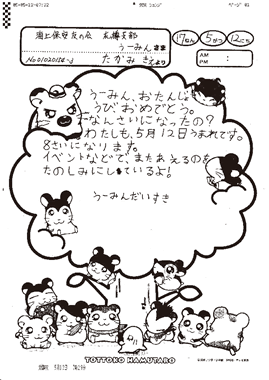 海上保安友の会 友縄支部
うーみんさま
たかみ さえより
17ねん 5がつ 12にち
AM :
PM :
うーみん、おたんじょ
うびおめでとう。
なんさいになったの?
わたしも、5月12日うまれです。
8さいになります。
イベントなどで、またあえるのを
たのしみにしているよ!
うーみんだいすき
TOTTOKO HAMUTARO